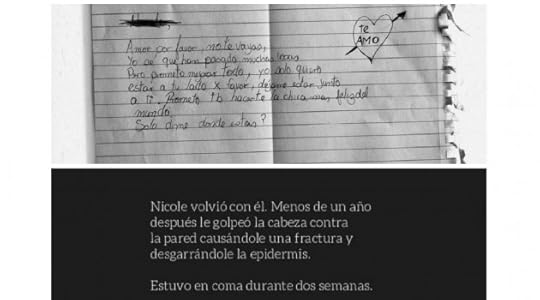 Amor por favor, no te vayas,
Yo se que han pasado muchas cosas
Pero prometo mejorar todo, yo solo quiero
estar a tu lado x favor, déjame estar junto
a ti. Prometo tb hacerte la chica mas feliz del
mundo.
Solo dime donde estas?
TE
AMO
Nicole volvió con él. Menos de un año
después le golpeó la cabeza contra
la pared causándole una fractura y
desgarrándole la epidermis.
Estuvo en coma durante dos semanas.